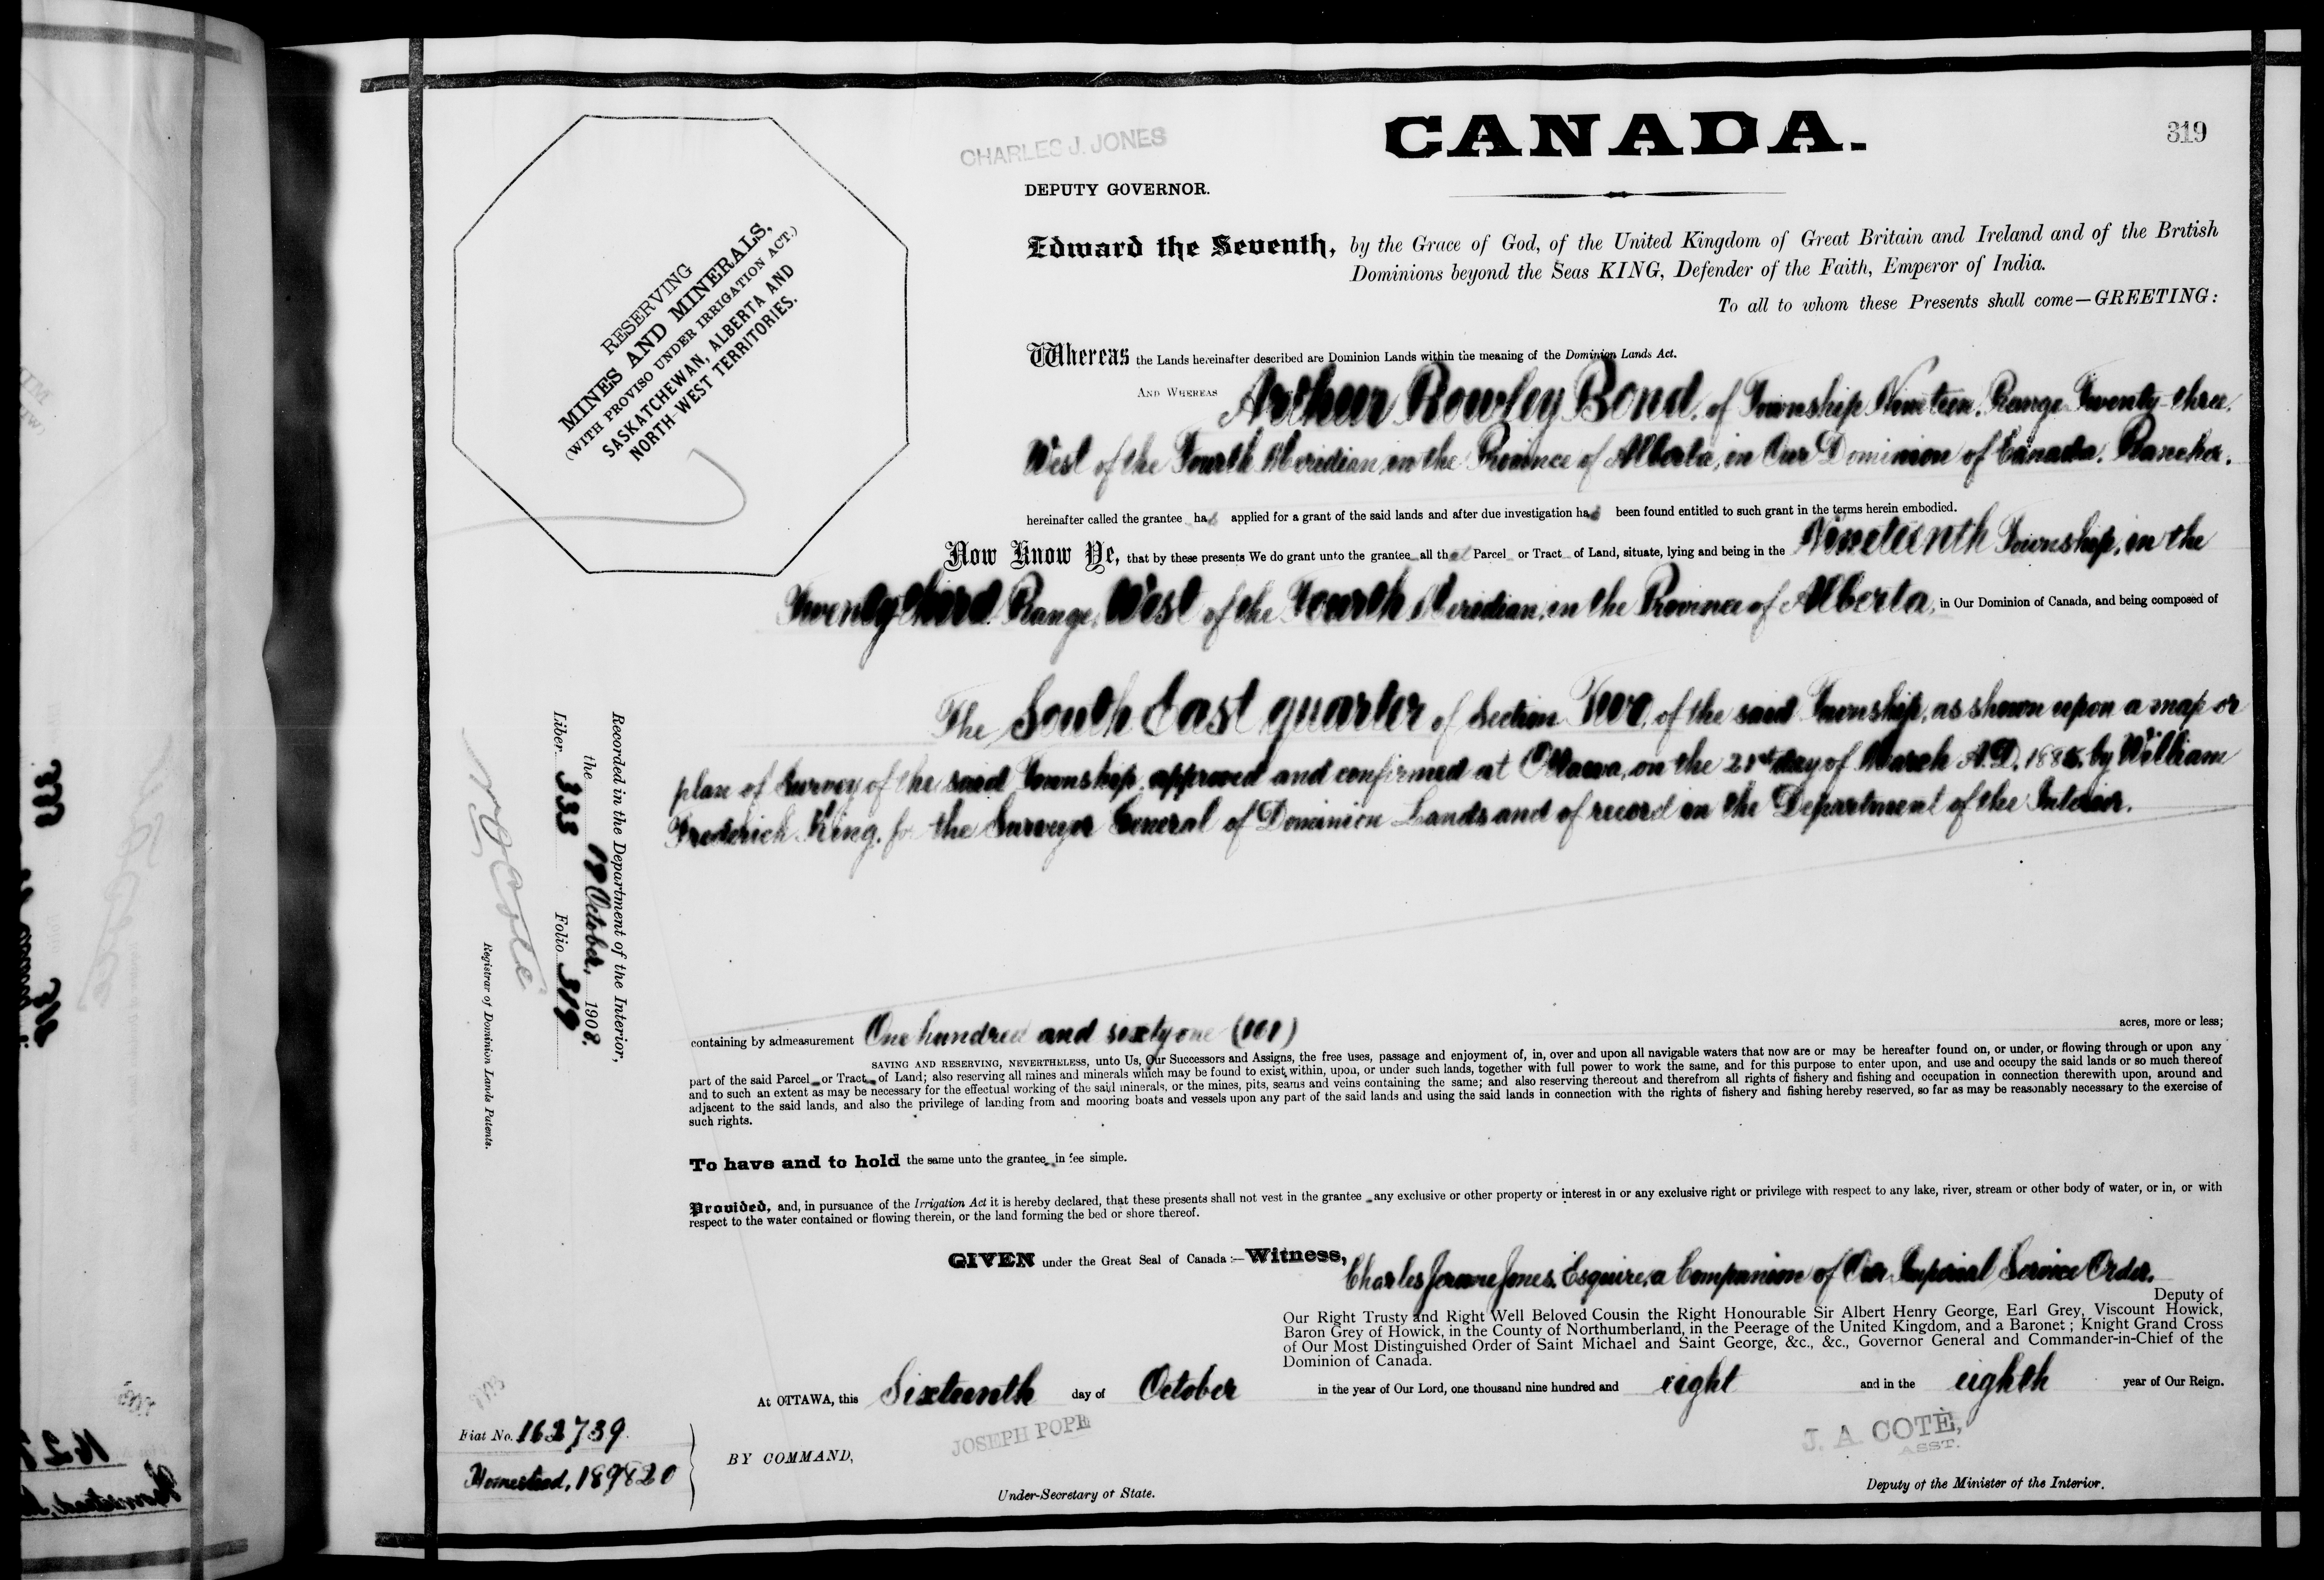 319
CHARLES J. JONES
CANADA.
DEPUTY GOVERNOR.
RESERVING
MINES AND MINERALS,
(WITH PROVISO UNDER IRRIGATION ACT.)
SASKATCHEWAN, ALBERTA AND
NORTH WEST TERRITORIES.
Edward the Seventh, by the Grace of God, of the United Kingdom of Great Britain and Ireland and of the British
Dominions beyond the Seas KING, Defender of the Faith, Emperor of India.
To all to whom these Presents shall come—GREETING:
Whereas the Lands hereinafter described are Dominion Lands within the meaning of the Dominion Lands Act.
AND WHEREAS Arthur Rowley Bond, of Township Nineteen, Range Twenty-three,
West of the Fourth Meridian, in the Province of Alberta, in Our Dominion of Canada, Rancher,
hereinafter called the grantee has applied for a grant of the said lands and after due investigation has been found entitled to such grant in the terms herein embodied.
Now Know Ye, that by these presents We do grant unto the grantee all that Parcel or Tract of Land, situate, lying and being in the Nineteenth Township, in the
Twenty-third Range, West of the Fourth Meridian, in the Province of Alberta, in Our Dominion of Canada, and being composed of
The South East quarter of Section Two, of the said Township, as shown upon a map or
plan of Survey of the said Township approved and confirmed at Ottawa, on the 21st day of March A.D. by William
Frederick King, for the Surveyor General of Dominion Lands and of record in the Department of the Interior.
Recorded in the Department of the Interior,
the October, 1908.
Liber 333 Folio 319
N O Coté
Registrar of Dominion Lands Patents.
containing by admeasurement One hundred and sixty one (161) acres, more or less;
SAVING AND RESERVING, NEVERTHELESS, unto Us, Our Successors and Assigns, the free uses, passage and enjoyment of, in, over and upon all navigable waters that now are or may be hereafter found on, or under, or flowing through or upon any
part of the said Parcel or Tract of Land; also reserving all mines and minerals which may be found to exist within, upon, or under such lands, together with full power to work the same, and for this purpose to enter upon, and use and occupy the said lands or so much thereof
and to such an extent as may be necessary for the effectual working of the said minerals, or the mines, pits, seams and veins containing the same; and also reserving thereout and therefrom all rights of fishery and fishing and occupation in connection therewith upon, around and
adjacent to the said lands, and also the privilege of landing from and mooring boats and vessels upon any part of the said lands and using the said lands in connection with the rights of fishery and fishing hereby reserved, so far as may be reasonably necessary to the exercise of
such rights.
To have and to hold the same unto the grantee in fee simple.
Provided, and, in pursuance of the Irrigation Act it is hereby declared, that these presents shall not vest in the grantee any exclusive or other property or interest in or any exclusive right or privilege with respect to any lake, river, stream or other body of water, or in, or with
respect to the water contained or flowing therein, or the land forming the bed or shore thereof.
GIVEN under the Great Seal of Canada:—Witness, Charles Jerome Jones, Esquire, a Companion of Our Imperial Service Order,
Deputy of
Our Right Trusty and Right Well Beloved Cousin the Right Honourable Sir Albert Henry George, Earl Grey, Viscount Howick,
Baron Grey of Howick, in the County of Northumberland, in the Peerage of the United Kingdom, and a Baronet; Knight Grand Cross
of Our Most Distinguished Order of Saint Michael and Saint George, &c., &c., Governor General and Commander-in-Chief of the
Dominion of Canada.
At OTTAWA, this Sixteenth day of October in the year of Our Lord, one thousand nine hundred and eight and in the eighth year of Our Reign.
Fiat No. 162739
Homestead, 189820
BY COMMAND,
JOSEPH POPE
Under-Secretary of State.
J. A. COTÉ,
ASST.
Deputy of the Minister of the Interior.